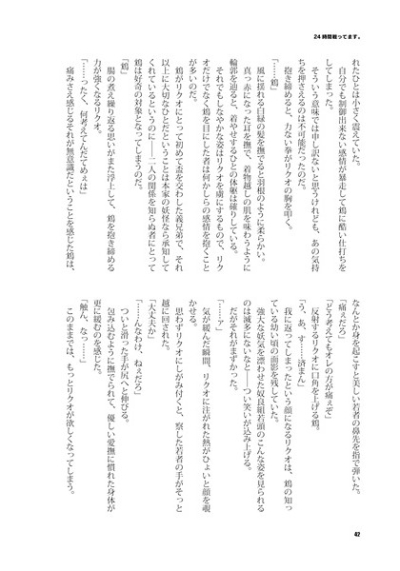 24時間縋ってます。
れたひとは小さく震えていた。
自分でも制御出来ない感情が暴走して鴆に酷い仕打ちを
してしまった。
そういう意味では申し訳ないと思うけれども、あの気持
ちを押さえるのは不可能だったのだ。
抱き締めると、力ない拳がリクオの胸を叩く。
「……鴆」
風に揺れる白緑の髪を撫でると羽根のように柔らかい。
真っ赤になった耳を撫で、着物越しの肌を味わうように
輪郭を辿ると、着やせするひとの体躯は確りしている。
それでもしなやかな姿はリクオを虜にするもので、リク
オだけでなく鴆を目にした者は何かしらの感情を抱くこと
が多いのだ。
鴆がリクオにとって初めて盃を交わした義兄弟で、それ
以上に大切なひとだということは本家の妖怪なら承知して
くれているというのに――二人の関係を知らぬ者にとって
鴆は好奇の対象となってしまうのだ。
「鴆」
腸の煮え繰り返る思いがまた浮上して、鴆を抱き締める
力が強くなるリクオ。
「……ったく、何考えてんだてめぇは」
痛みさえ感じるそれが無意識だということを感じた鴆は、
なんとか身を起こすと美しい若者の鼻先を指で弾いた。
「痛ぇだろ」
「どう考えてもオレの方が痛ぇぞ」
反射するリクオに口角を上げる鴆。
「う、あ、す……済まん」
我に返ってしまったという顔になるリクオは、鴆の知っ
ている幼い頃の面影を残していた。
強大な妖気を漂わせた奴良組若頭のこんな姿を見られる
のは滅多にないなと――つい笑いが込み上げる。
だがそれがまずかった。
「……ァ」
気が緩んだ瞬間、リクオに注がれた熱がひょいと顔を覗
かせる。
思わずリクオにしがみ付くと、察した若者の手がそっと
鴆に回された。
「大丈夫か」
「……んなわけ、ねぇだろ」
ついと滑った手が尻へと伸びる。
包み込むように撫でられて、優しい愛撫に慣れた身体が
更に緩むのを感じた。
「触ん、なっ……」
このままでは、もっとリクオが欲しくなってしまう。
42